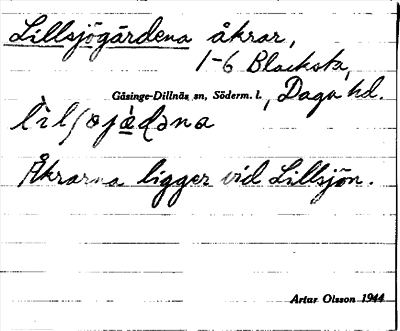 Lillsjögärdena åkrar,
1-6 Blacksta,
Gåsinge-Dillnäs sn, Söderm. l., Daga hd.
Åkrarna ligger vid Lillsjön.
Artur Olsson 1944